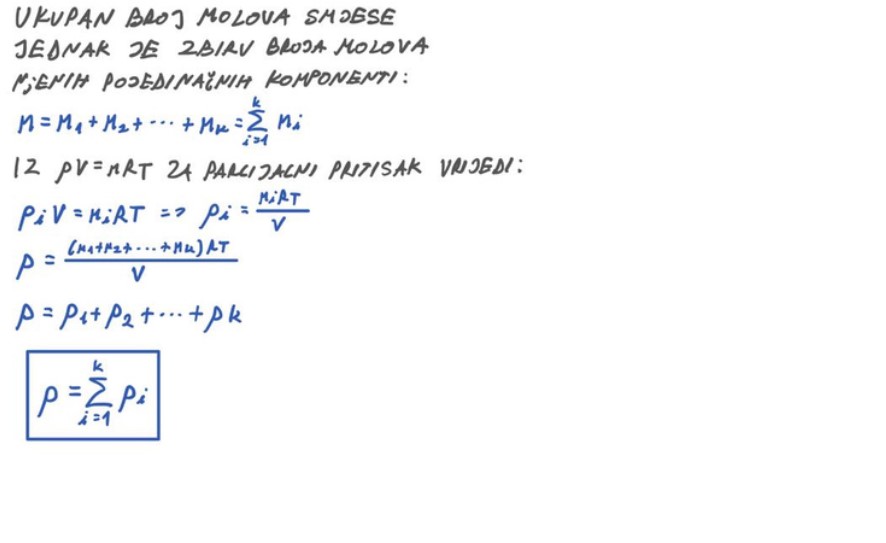 UKUPAN BROJ MOLOVA SMJESE
JEDNAK JE ZBIRU BROJA MOLOVA
NJENIH POJEDINAČNIH KOMPONENTI:
n = n₁ + n₂ + ··· + nₖ = ∑ᵢ₌₁ᵏ nᵢ
IZ pV = nRT ZA PARCIJALNI PRITISAK VRIJEDI:
pᵢV = nᵢRT => pᵢ = nᵢRT / V
p = (n₁+n₂+···+nₖ)RT / V
p = p₁ + p₂ + ··· + pk
p = ∑ᵢ₌₁ᵏ pᵢ